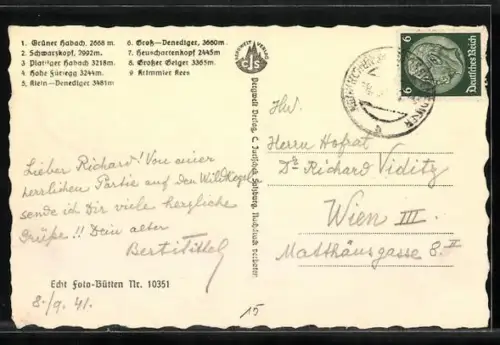 1. Grüner Habach, 2668 m.
2. Schwarzkopf, 2992m.
3 Plattiger Habach 3218m.
4 Hohe Fürlegg 3244m.
5, Klein-Venediger 3481m
6. Groß-Venediger, 3660m.
7. Heuschartenkopf 2445m
8. Großer Geiger 3365m.
9 Krimmler Kees
BERGWELT VERLAG
cjs
Bergwelt Verlag, C. Salzburg. Nachdruck verboten.
6 Deutsches Reich 6
Hw.
Herrn Hofrat
Dr. Richard Viditz
Wien III.
Matthäusgasse 8.II
Lieber Richard! Von einer
herrlichen Partie auf den Wildkogel
sende ich Dir viele herzliche
Grüße!! Dein alter
Echt Foto-Bütten Nr. 10351
8./9. 41.
15